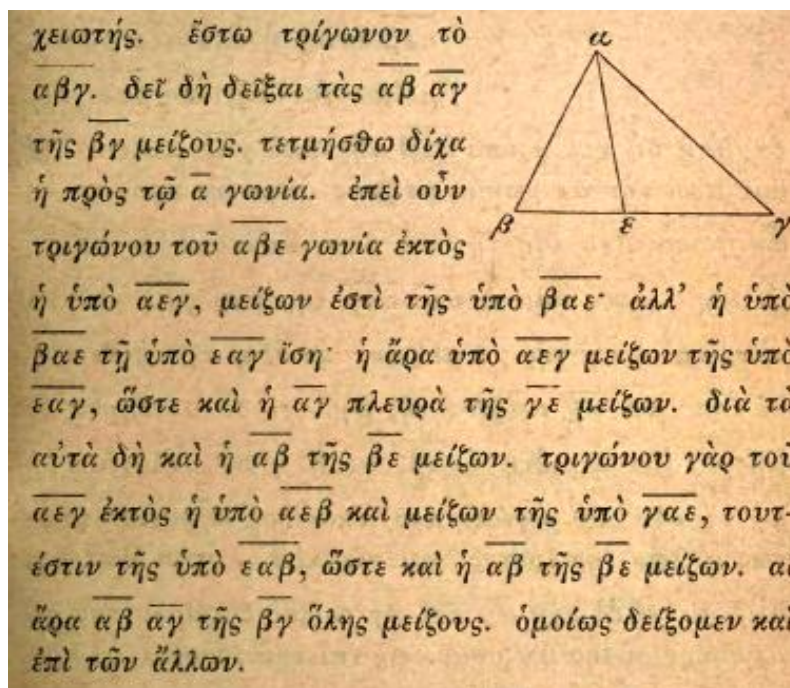 χειωτής. ἔστω τρίγωνον τὸ
α̅β̅γ̅. δεῖ δὴ δεῖξαι τὰς α̅β̅ α̅γ̅
τῆς β̅γ̅ μείζους. τετμήσθω δίχα
ἡ πρὸς τῷ α̅ γωνία. ἐπεὶ οὖν
τριγώνου τοῦ α̅β̅ε̅ γωνία ἐκτὸς
ἡ ὑπὸ α̅ε̅γ̅, μείζων ἐστὶ τῆς ὑπὸ β̅α̅ε̅· ἀλλ' ἡ ὑπὸ
β̅α̅ε̅ τῇ ὑπὸ ε̅α̅γ̅ ἴση· ἡ ἄρα ὑπὸ α̅ε̅γ̅ μείζων τῆς ὑπὸ
ε̅α̅γ̅, ὥστε καὶ ἡ α̅γ̅ πλευρὰ τῆς γ̅ε̅ μείζων. διὰ τὰ
αὐτὰ δὴ καὶ ἡ α̅β̅ τῆς β̅ε̅ μείζων. τριγώνου γὰρ τοῦ
α̅ε̅γ̅ ἐκτὸς ἡ ὑπὸ α̅ε̅β̅ καὶ μείζων τῆς ὑπὸ γ̅α̅ε̅, τουτ-
έστιν τῆς ὑπὸ ε̅α̅β̅, ὥστε καὶ ἡ α̅β̅ τῆς β̅ε̅ μείζων. αἱ
ἄρα α̅β̅ α̅γ̅ τῆς β̅γ̅ ὅλης μείζους. ὁμοίως δείξομεν καὶ
ἐπὶ τῶν ἄλλων.
α
β ε γ